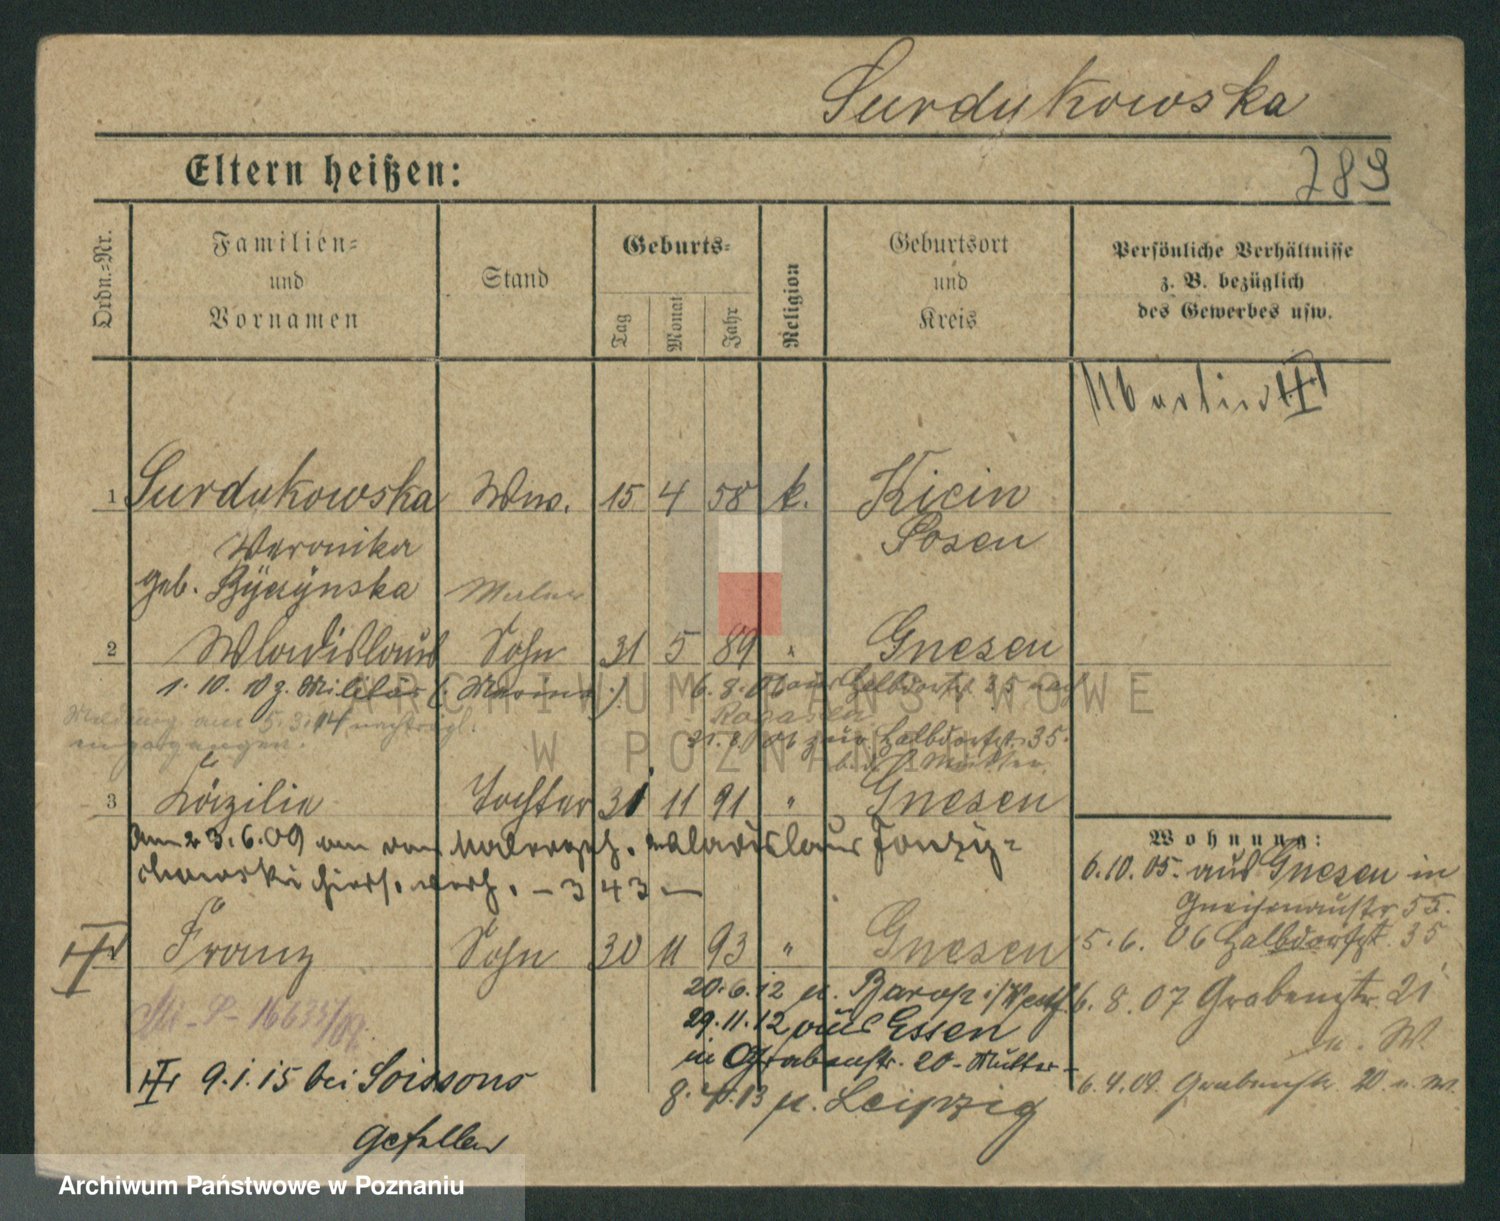 Surdukowska
Eltern heißen:
289
Ordn.=Nr.
Familien=
und
Vornamen
Stand
Geburts=
Tag
Monat
Jahr
Religion
Geburtsort
und
Kreis
Persönliche Verhältnisse
z. B. bezüglich
des Gewerbes usw.
1 Surdukowska Ww. 15 4 58 k. Kicin
Veronika Posen
geb.
2 Wladislaus Sohn 31 5 89 " Gnesen
1. 10. 10 z. Militär (Marine) 6. 8. 06 aus Halbdorfstr. 35 nach
Meldung am 5. 3. 14 nachträgl. Rogasen
eingegangen. 06 zur. Halbdorfstr. 35.
b. d. Mutter.
3 Cäzilie Tochter 31 11 91 " Gnesen
Am 23. 6. 09 an den Wladislaus
hiers. verh. – 343 –
Wohnung:
6. 10. 05. aus Gnesen in
Gneisenaustr 55.
Franz Sohn 30 11 93 " Gnesen
5. 6. 06 Halbdorfstr. 35
20. 6. 12 n. Barop i/Westf.
6. 8. 07 Grabenstr. 21
29. 11. 12 aus Essen
n. W.
9. 1. 15 bei Soissons
in Grabenstr. 20 - Mutter -
6. 4. 09. Grabenstr. 20 n. W.
8. 4. 13 n. Leipzig
gefallen
ARCHIWUM PAŃSTWOWE
W POZNANIU
Archiwum Państwowe w Poznaniu